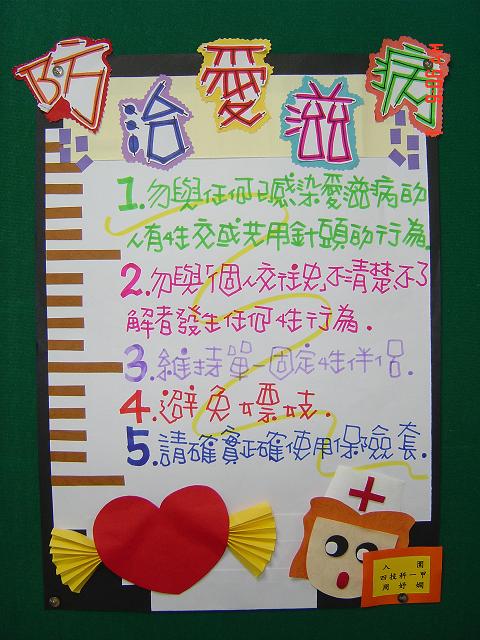 防治愛滋病
1.勿與任何已感染愛滋病的
人有性交或共用針頭的行為.
2.勿與個人交往史不清楚不了
解者發生任何性行為.
3.維持單一固定性伴侶.
4.避免嫖妓.
5.請確實正確使用保險套.
入圍
四技科一甲
周妤嫻